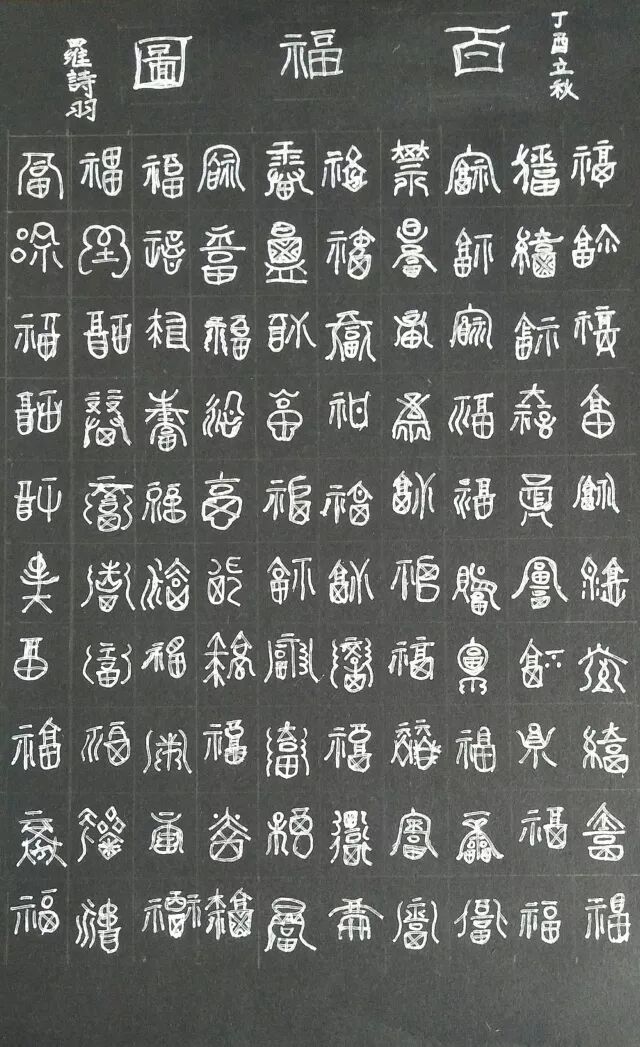 丁酉立秋
百福圖
羅詩羽
福福福福福福福福福福
福福福福福福福福福福
福福福福福福福福福福
福福福福福福福福福福
福福福福福福福福福福
福福福福福福福福福福
福福福福福福福福福福
福福福福福福福福福福
福福福福福福福福福福
福福福福福福福福福福